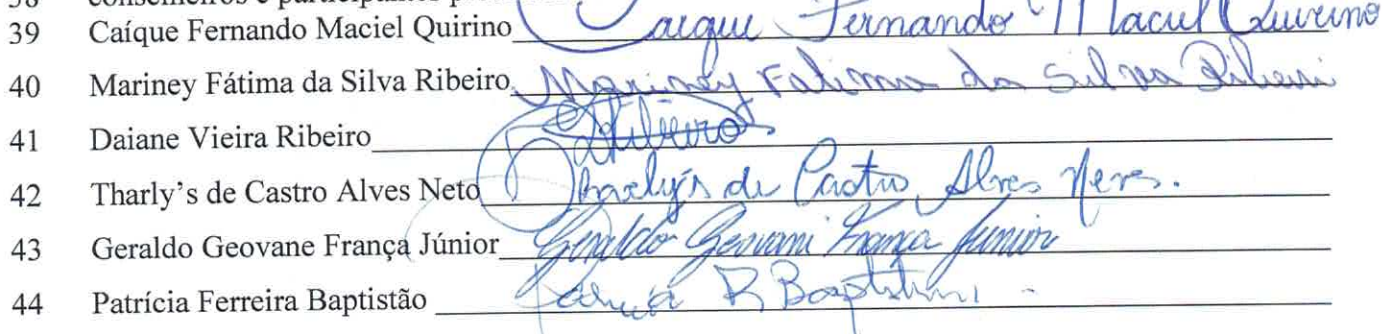 38 conselheiros e participantes
39 Caíque Fernando Maciel Quirino Caique Fernando Maciel Quirino
40 Mariney Fátima da Silva Ribeiro Mariney Fatima da Silva Ribeiro
41 Daiane Vieira Ribeiro DRibeiro
42 Tharly's de Castro Alves Neto Tharly's de Castro Alves Neves.
43 Geraldo Geovane França Júnior Geraldo Geovani França Junior
44 Patrícia Ferreira Baptistão